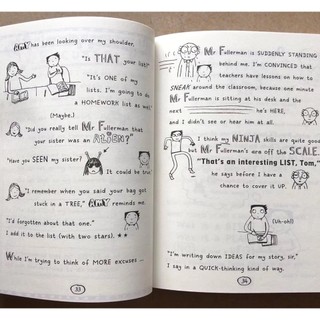 AMY has been looking over my shoulder.
"Is THAT your LIST?"
"It's ONE of my
lists. I'm going to do
a HOMEWORK list as well."
(Maybe.)
"Did you really tell Mr Fullerman that
your sister was an ALIEN?"
"Have you SEEN my sister?
It could be true."
"I remember when you said your bag got
stuck in a TREE," AMY reminds me.
"I'd forgotten about that one."
I add it to the list (with two stars). ★★
While I'm trying to think of MORE excuses ...
33
Mr Fullerman is SUDDENLY STANDING
behind me. I'm CONVINCED that
teachers have lessons on how to
SNEAK around the classroom, because one minute
Mr Fullerman is sitting at his desk and the
next he's HERE,
and I didn't see or hear him at all.
I think my NINJA skills are quite good
but Mr Fullerman's are off the SCALE.
"That's an interesting LIST, Tom,"
he says before I have a
chance to cover it UP.
(Uh-oh!)
"I'm writing down IDEAS for my story, sir,"
I say in a QUICK-thinking kind of way.
34